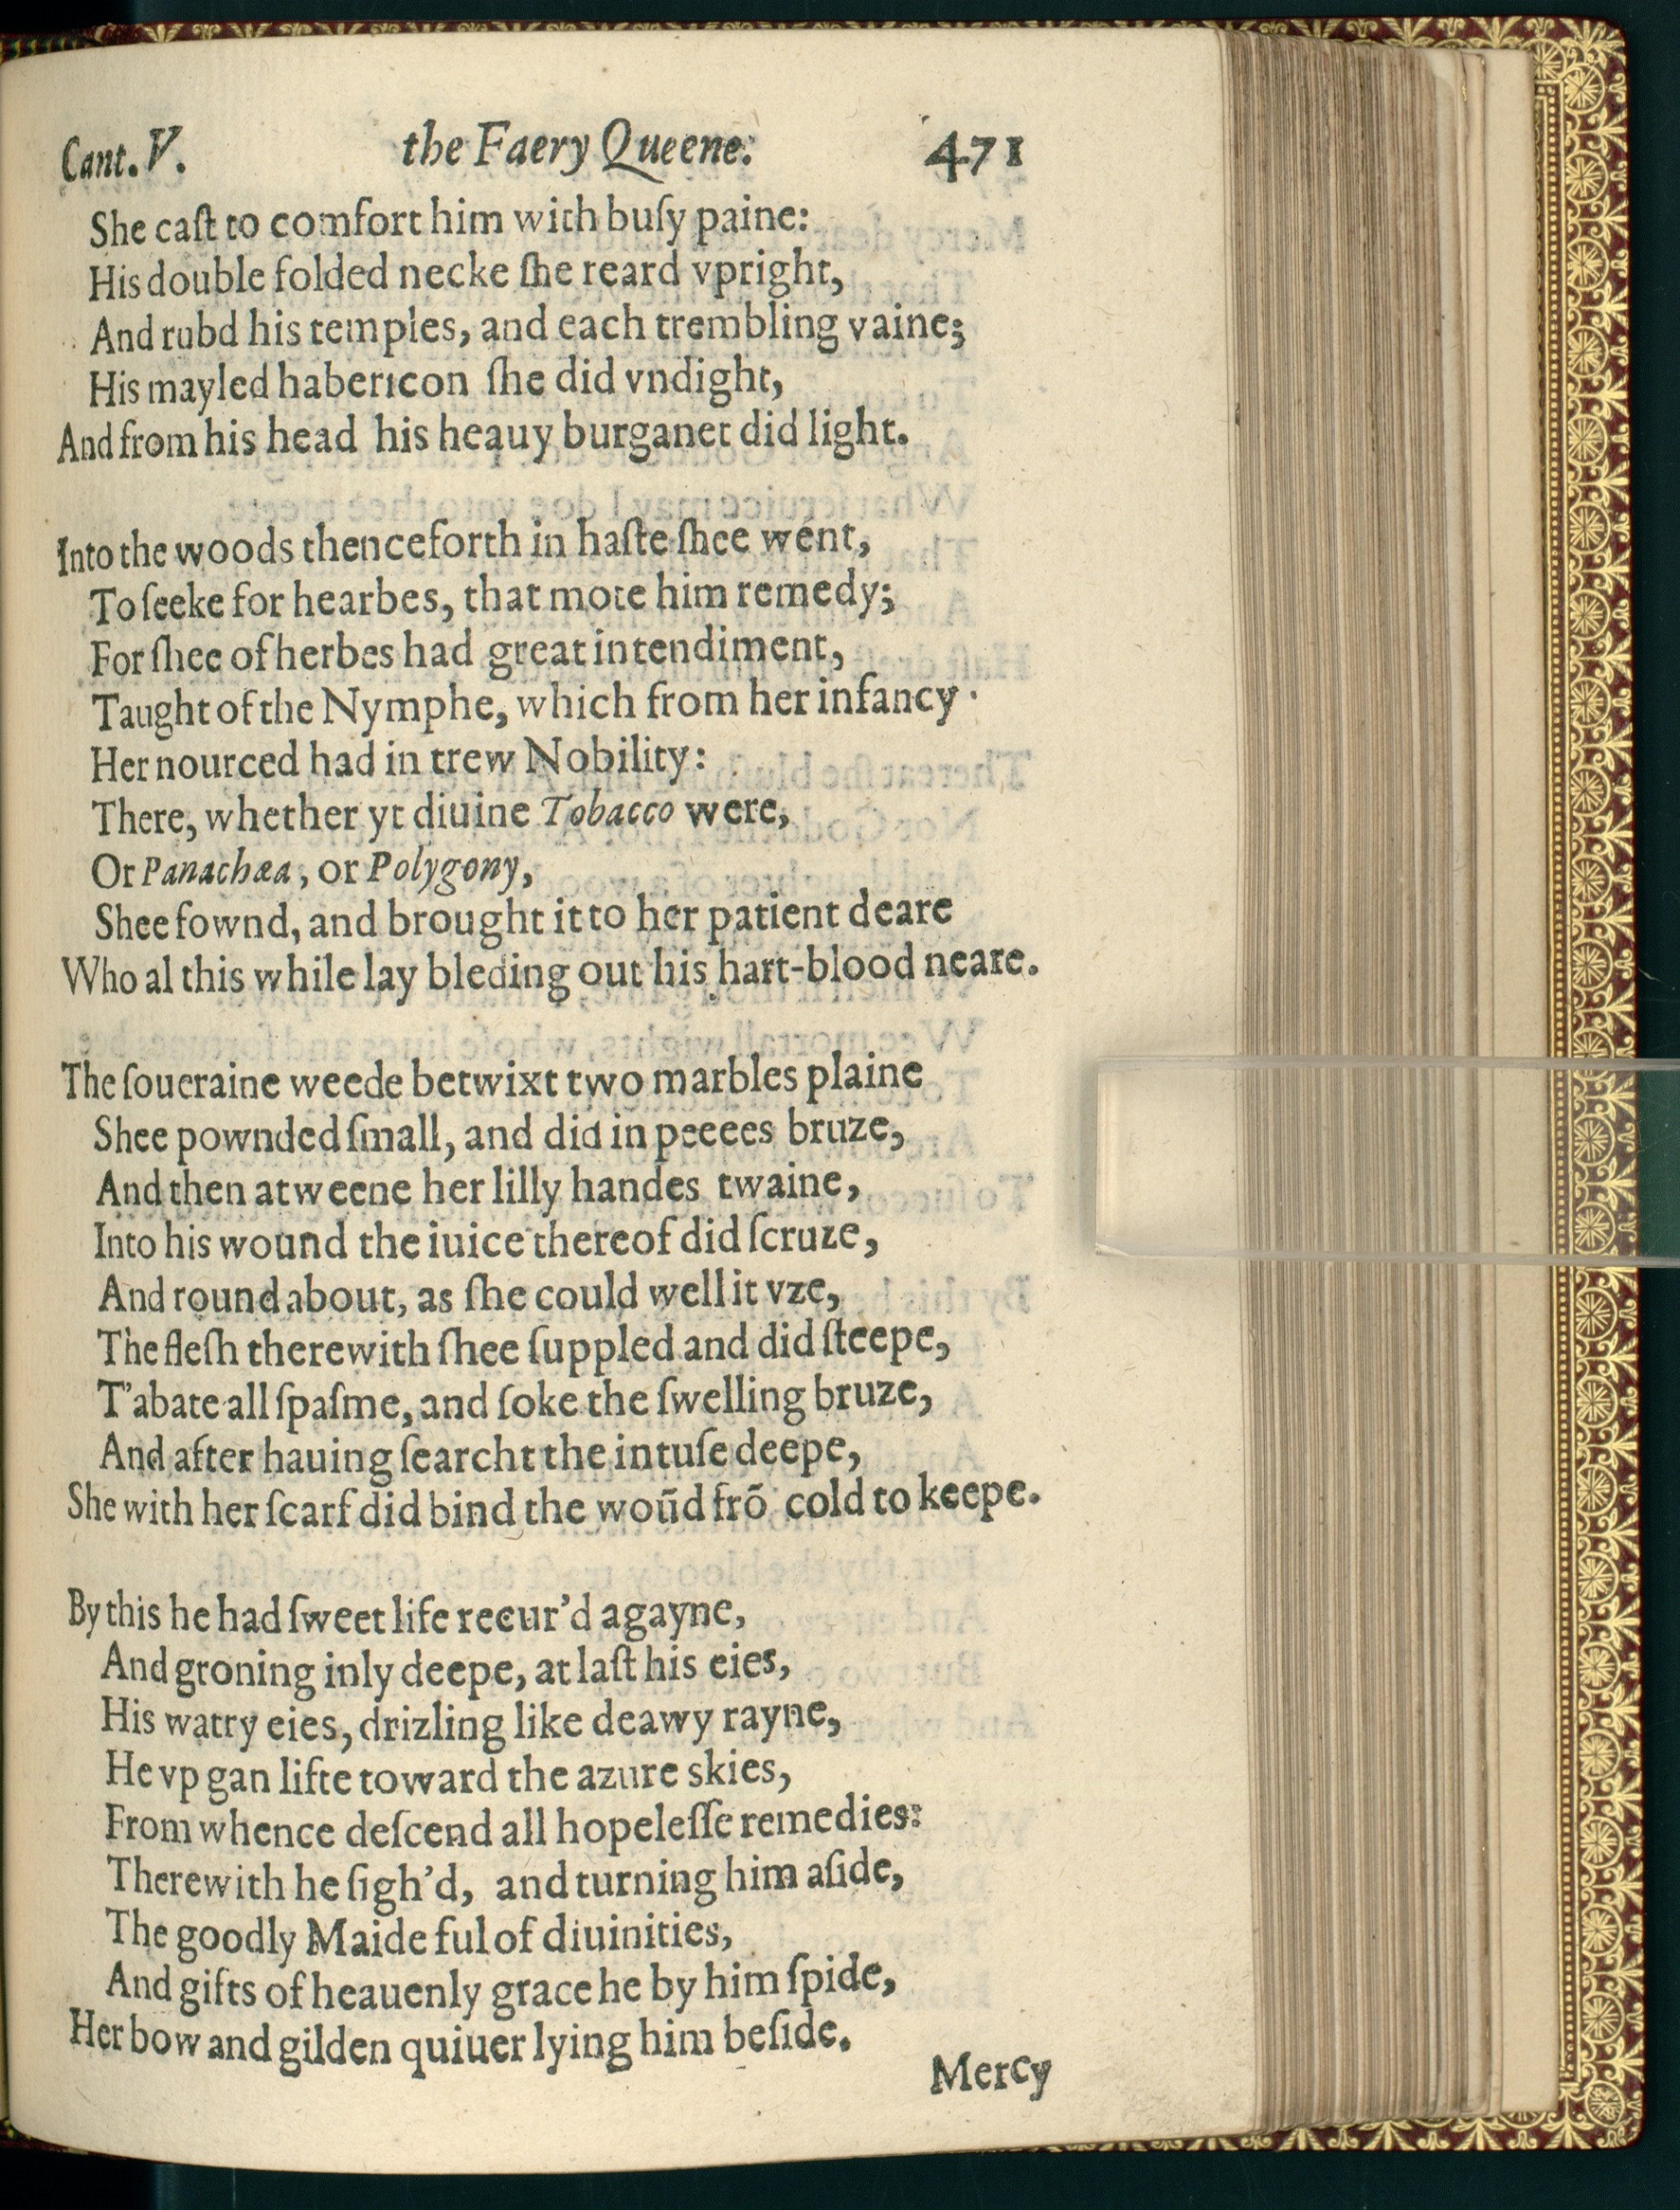 Cant. V. the Faery Queene. 471
She caſt to comfort him with buſy paine:
His double folded necke ſhe reard vpright,
And rubd his temples, and each trembling vaine;
His mayled habericon ſhe did vndight,
And from his head his heauy burganet did light.
Into the woods thenceforth in haſte ſhee went,
To ſeeke for hearbes, that mote him remedy;
For ſhee of herbes had great intendiment,
Taught of the Nymphe, which from her infancy
Her nourced had in trew Nobility:
There, whether yt diuine Tobacco were,
Or Panachæa, or Polygony,
Shee fownd, and brought it to her patient deare
Who al this while lay bleding out his hart-blood neare.
The ſoueraine weede betwixt two marbles plaine
Shee pownded ſmall, and did in peeees bruze,
And then atweene her lilly handes twaine,
Into his wound the iuice thereof did ſcruze,
And round about, as ſhe could well it vze,
The fleſh therewith ſhee ſuppled and did ſteepe,
T'abate all ſpaſme, and ſoke the ſwelling bruze,
And after hauing ſearcht the intuſe deepe,
She with her ſcarf did bind the woũd frõ cold to keepe.
By this he had ſweet life recur'd agayne,
And groning inly deepe, at laſt his eies,
His watry eies, drizling like deawy rayne,
He vp gan lifte toward the azure skies,
From whence deſcend all hopeleſſe remedies:
Therewith he ſigh'd, and turning him aſide,
The goodly Maide ful of diuinities,
And gifts of heauenly grace he by him ſpide,
Her bow and gilden quiuer lying him beſide.
Mercy